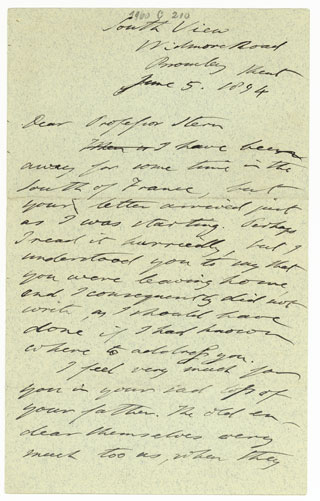 2900 G 210
South View
Widmore Road
Bromley Kent
June 5. 1894
Dear Professor Stern
I have been
away for some time in the
South of France, but
your letter arrived just
as I was starting. Perhaps
I read it hurriedly, but I
understood you to say that
you were leaving home,
and I consequently did not
write, as I should have
done if I had known
where to address you.
I feel very much for
you in your sad loss of
your father. The old en-
dear themselves very
much too as, when they